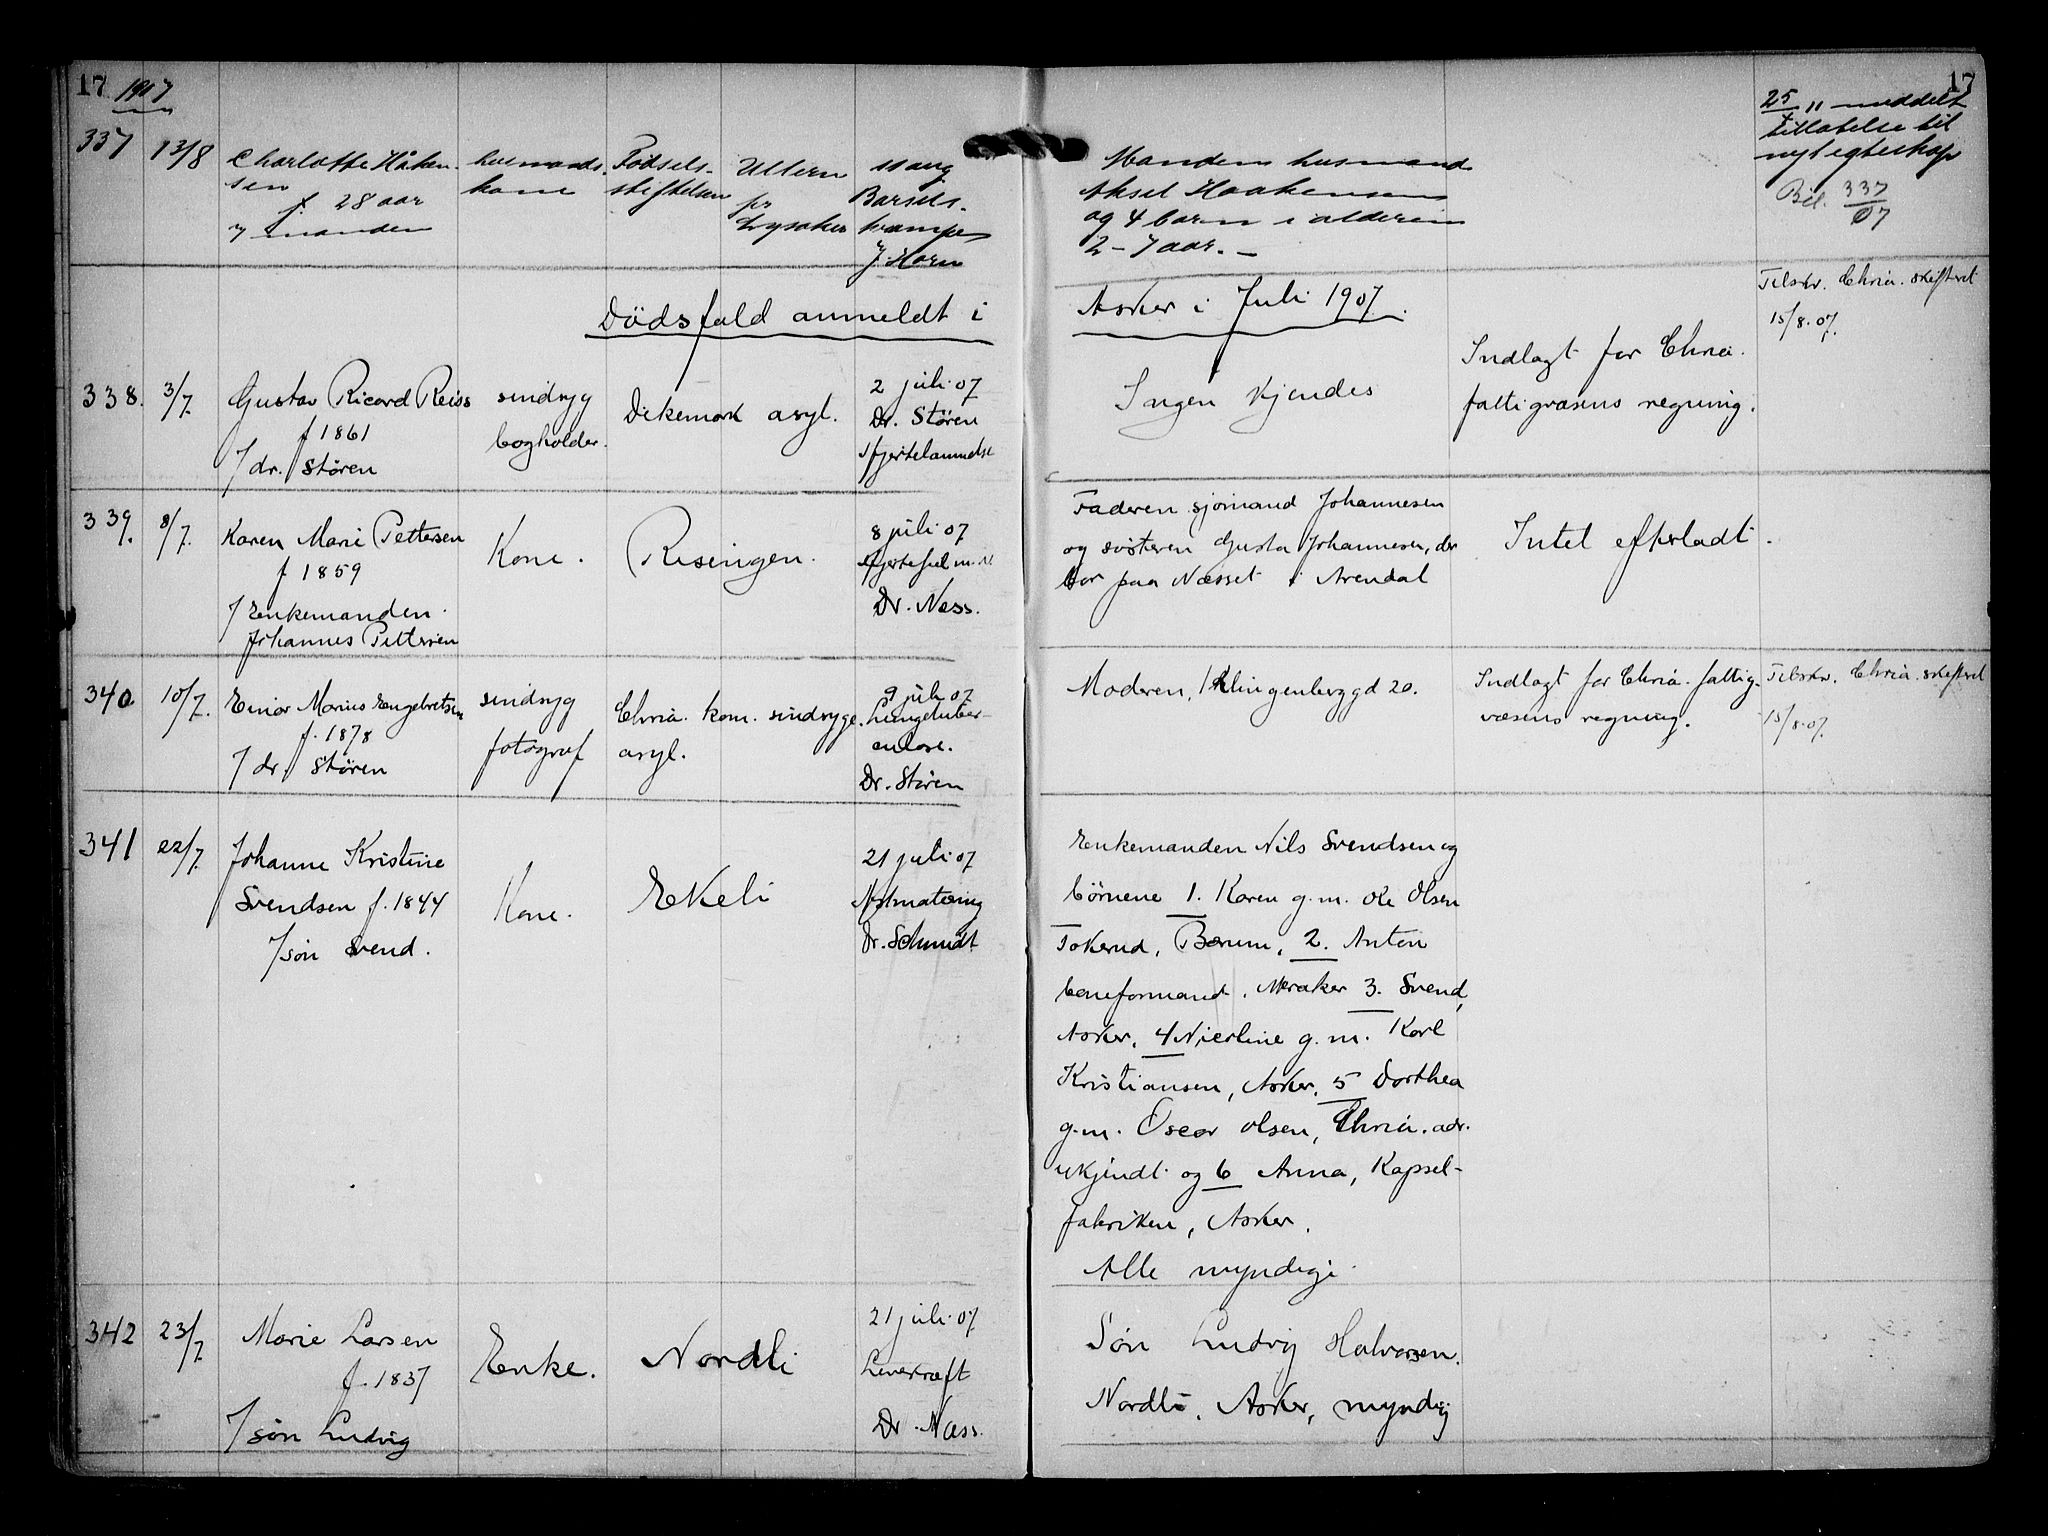 17 1907
337
13/8
Charlotte Håken-
sen
f. 28 aar
v/ manden
husmands-
kone
Fødsels-
stiftelsen
Ullern
pr
Lysaker
11 aug
Barsels-
krampe
v/ J. Horn
Manden husmand
Aksel Haakensen
og 4 barn i alderen
2-7 aar. -
17
25/11 meddelt
tillatelse til
nyt egteskap
Bil. 337/07
Dödsfald anmeldt i Asker i Juli 1907.
338.
3/7.
Gustav Ricard Reiss
f 1861
/ dr. Stören
sindsyg
bogholder.
Dikemark asyl.
2 juli 07
Dr. Stören
Hjertelammelse
Ingen kjendes
Indlagt for Chria.
fattigvæsens regning.
Tilskr. Chria. skifteret
15/8.07.
339.
8/7.
Karen Marie Pettersen
f 1859
/ Enkemanden
Johannes Pettersen
Kone.
Risingen.
8 juli 07
Hjertefeil m.
Dr. Næss.
Faderen sjømand Johannesen
og søsteren Gusta Johannesen, der
bor paa Næsset i Arendal
Intet efterladt.
340
10/7.
Einar Marius Engebretsen
f. 1878
/ dr. Stören
sindsyg
fotograf
Chria. kom. sindsyge
asyl.
9 juli 07
Lungetuber-
culose.
Dr. Stören
Moderen, Klingenberggd 20.
Indlagt for Chria. fattig-
væsens regning.
Tilskr. Chria. skifteret
15/8.07.
341
22/7.
Johanne Kristine
Svendsen f. 1844
/ søn Svend.
Kone.
Ekeli
21 juli 07
Dr. Schmidt
Enkemanden Nils Svendsen og
börnene 1. Karen g.m. Ole Olsen
Tokerud, Bærum, 2. Anton
baneformand, Meraker 3. Svend,
Asker, 4 Nicoline g.m. Karl
Kristiansen, Asker, 5 Dorthea
g.m. Oscar Olsen, Chria. adr.
ukjendt og 6 Anna, Kapsel-
fabriken, Asker.
Alle myndige
342
23/7
Marie Larsen
f. 1837
/ søn Ludvig
Enke.
Nordli
21 juli 07
Leverkræft
Dr. Næss.
Søn Ludvig Halvorsen.
Nordli, Asker, myndig